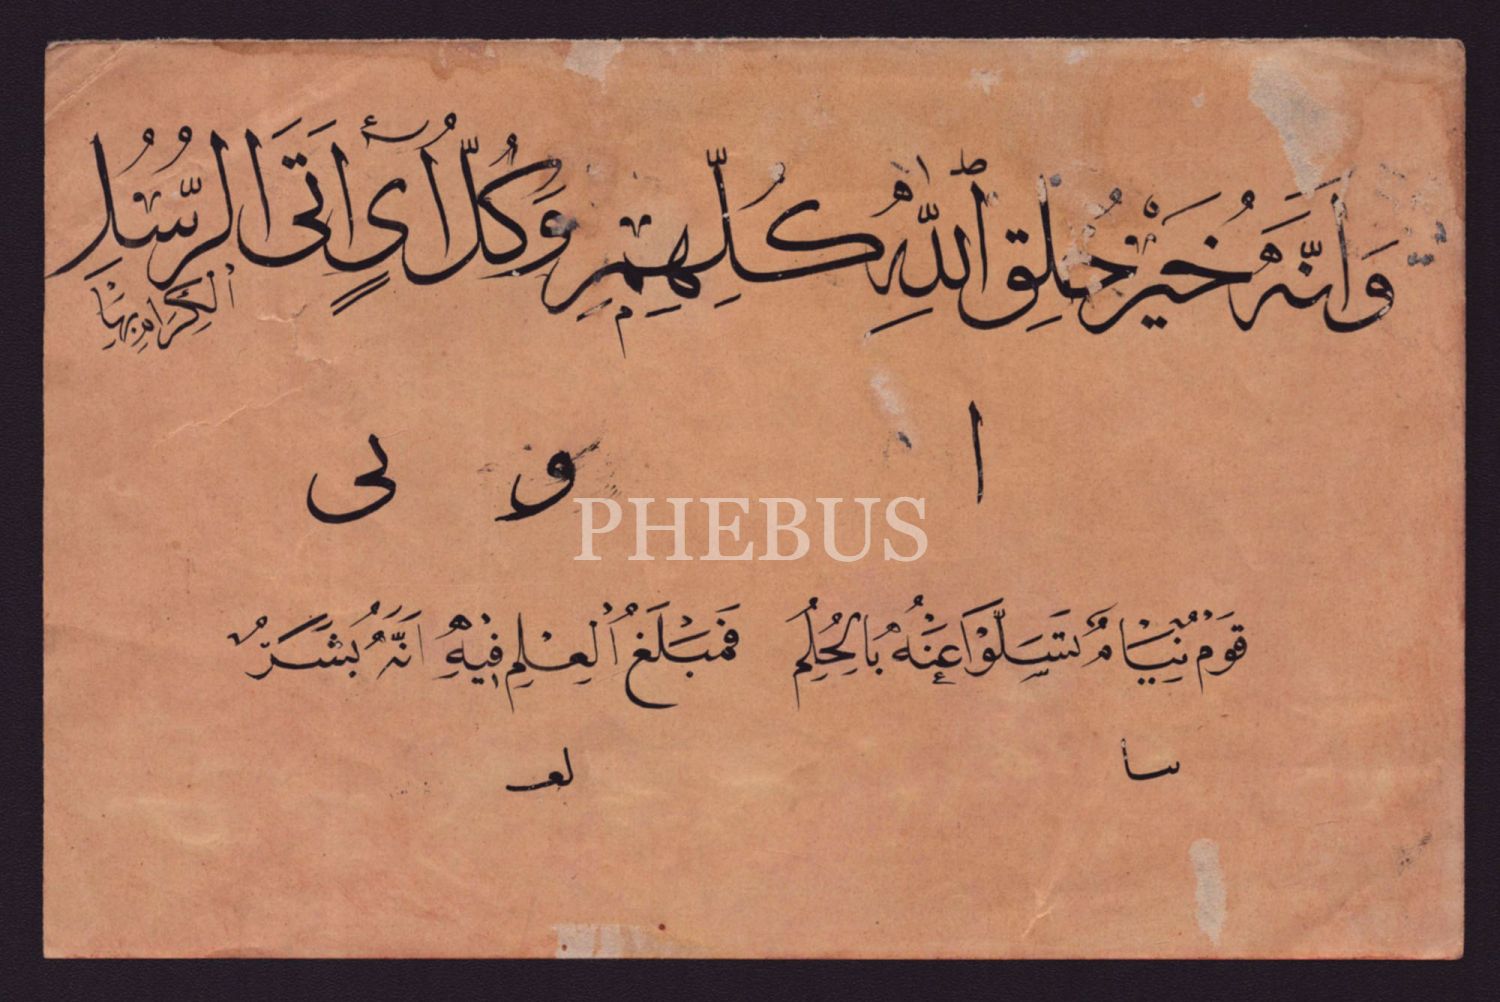 وَاَنَّهُ خَيْرُ خَلْقِ ٱللّٰهِ كُلِّهِمِ وَكُلُّ اٰيٍ اَتَى الرُّسُلُ
الْكِرَامُ بِهَا
ا و لى
قَوْمٌ نِيَامٌ تَسَلَّوْا عَنْهُ بِالْحُلُمِ فَمَبْلَغُ الْعِلْمِ فِيْهِ اَنَّهُ بَشَرٌ
سا لعـ
PHEBUS